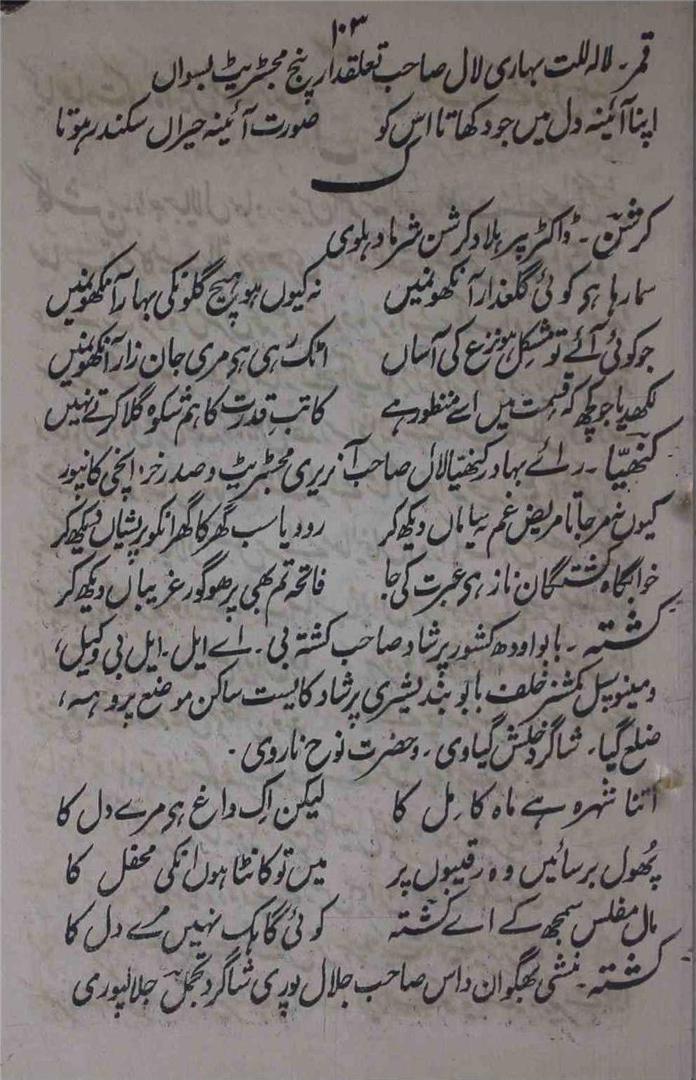 ۱۰۳
قمر۔ لالہ للت بہاری لال صاحب تعلقدار پنچ مجسٹریٹ بسواں
اپنا آئینہ دل میں جو دکھاتا اس کو صورت آئینہ حیراں سکندر ہوتا
ک
کرشن۔ ڈاکٹر پرہلاد کرشن شرما دہلوی
سما رہا ہی کوئی گلعذار آنکھونمیں نہ کیوں ہو ہیچ گلونکی بہار آنکھونمیں
جو کوئی آئے تو مشکل ہو نزع کی آساں اٹک رہی ہی مری جان زار آنکھونمیں
لکھدیا جو کچھ کہ قسمت میں اسے منظور ہے کاتب قدرت کا ہم شکوہ گلا کرتے نہیں
کنھیّا۔ رائے بہادر کنھیا لال صاحب آنریری مجسٹریٹ و صدر خزانچی کانپور
کیوں نہ مرجاتا مریض غم یہ ساماں دیکھ کر رو دیا سب گھر کا گھر انکو پریشاں دیکھ کر
خوابگاہ کشتگان ناز ہی عبرت کی جا فاتحہ تم بھی پڑھو گور غریباں دیکھ کر
کشتہ۔ بابو اودھ کشور پرشاد صاحب کشتہ بی۔ اے ایل۔ ایل بی وکیل،
و مینوسپل کمشنر خلف بابو بندیشری پرشاد کایست ساکن موضع پروہہ،
ضلع گیا۔ شاگرد خلش گیاوی۔ و حضرت نوح ناروی۔
اتنا شہرہ ہے ماہ کامل کا لیکن اک داغ ہی مرے دل کا
پھول برسائیں وہ رقیبوں پر میں تو کانٹا ہوں انکی محفل کا
مال مفلس سمجھ کے اے کشتہ کوئی گاہک نہیں مرے دل کا
کشتہ۔ منشی بھگوان داس صاحب جلال پوری شاگرد تجمل جلالپوری